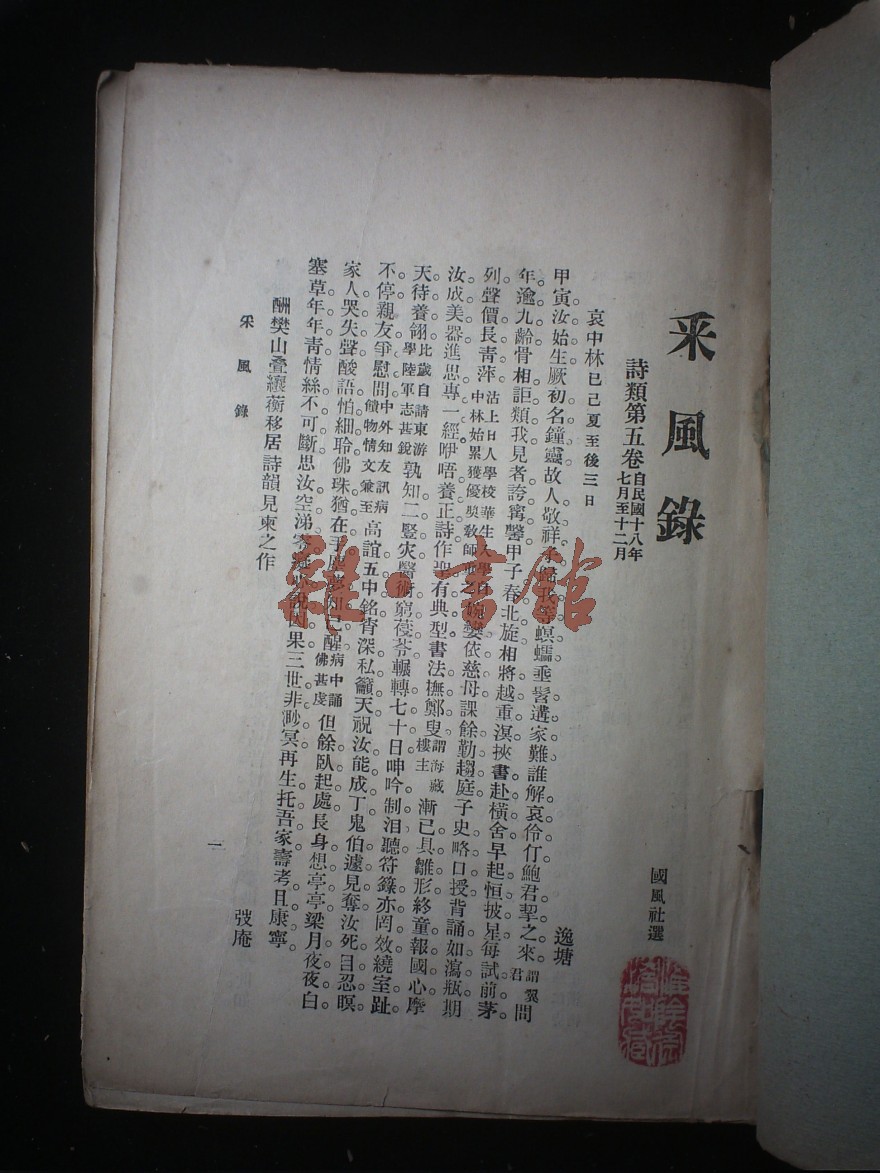 采風錄
詩類第五卷 自民國十八年七月至十二月
國風社選
哀中林 已己夏至後三日
逸塘
甲寅汝始生厥初名鐘靈故人敬祥 螟蠕垂髫遘家難誰解哀伶仃鮑君挈之來 謂翼君 問
年逾九齡骨相詎類我見者誇甯馨甲子春北旋相將越重溟挾書赴橫舍早起恒披星每試前茅
列聲價長青萍 沽上日人學校華生入學自中林始累獲優奬敎師 婉孌依慈母課餘勤趨庭子史略口授背誦如瀉瓶期
汝成美器進思專一經咿唔養正詩作聖有典型書法撫鄭叟 謂海藏樓主 漸已具雛形終童報國心摩
天待養翎 比歲自請東游學陸軍志甚銳 孰知二豎灾醫術窮蓡苓輾轉七十日呻吟制泪聽符籙亦罔效繞室趾
不停親友爭慰問 中外知友訊病饋物情文兼至 高誼五中銘宵深私籲天祝汝能成丁鬼伯遽見奪汝死目忍暝
家人哭失聲酸語怕細聆佛珠猶在手 醒 病中誦佛甚虔 但餘臥起處長身想亭亭梁月夜夜白
塞草年年靑情絲不可斷思汝空涕零 說因果三世非渺冥再生托吾家壽考且康寧
酬樊山叠纕蘅移居詩韻見柬之作
弢庵
采風錄
一
雜·書館